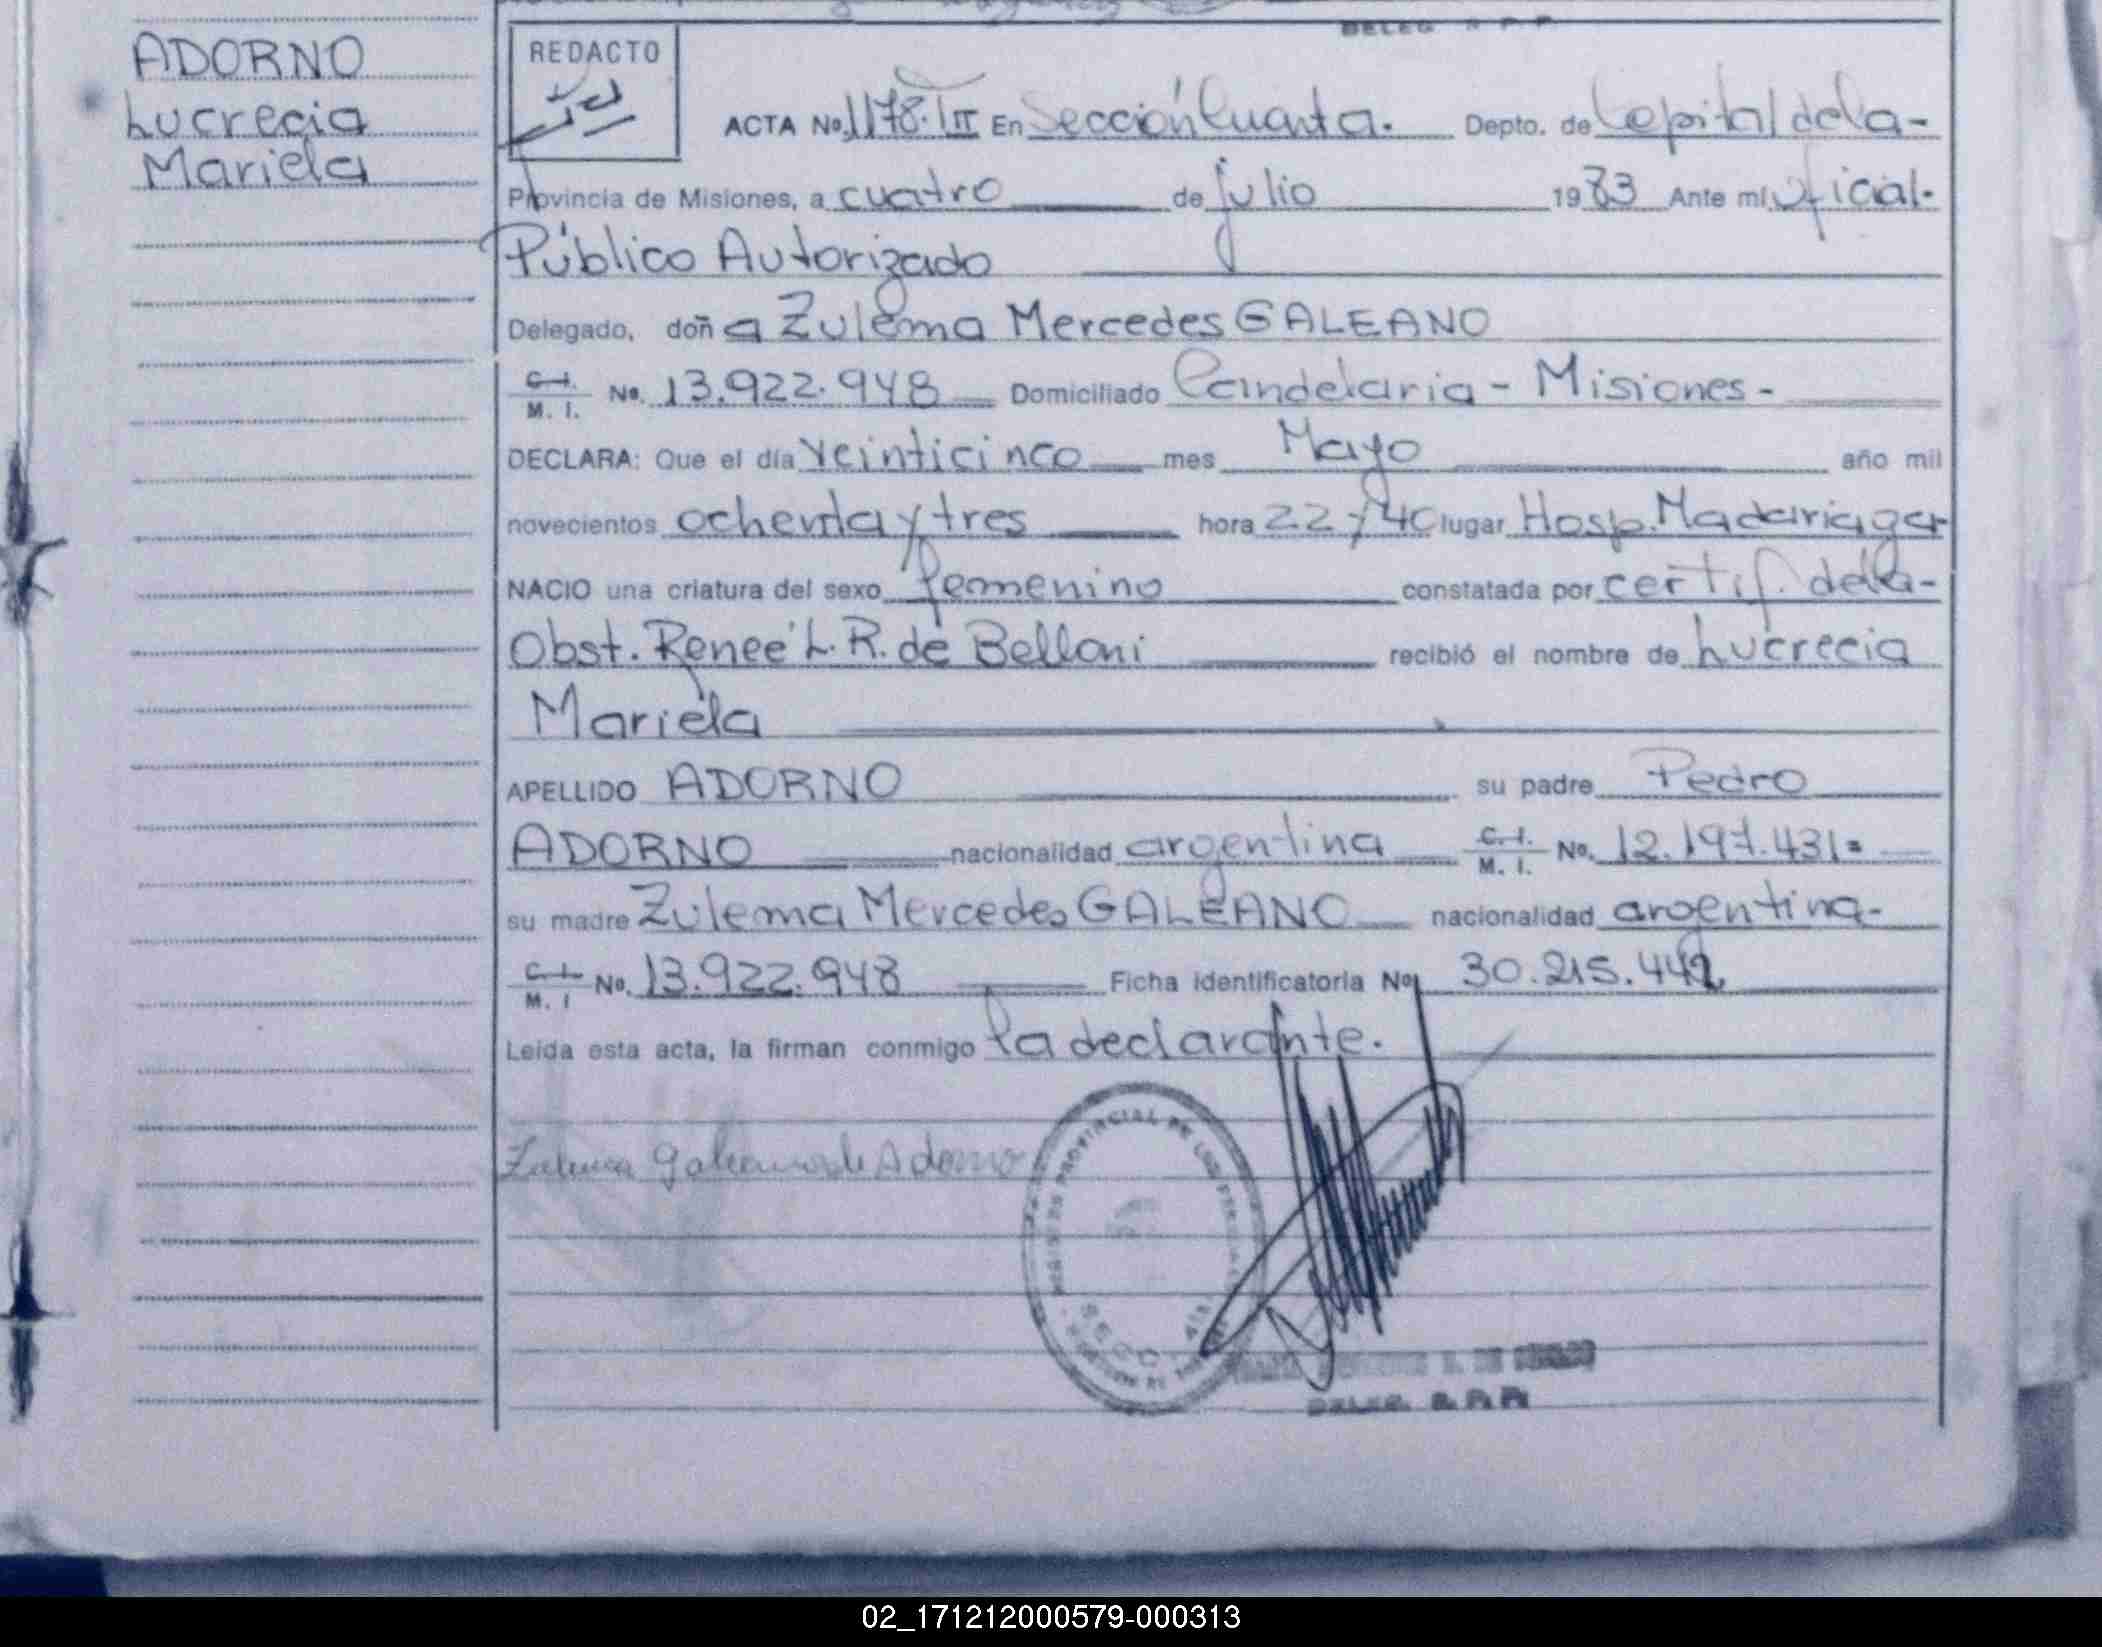 ADORNO
Lucrecia
Mariela
DELEG R P P
REDACTO
ACTA No. 1178. III En Sección Cuarta. Depto. de Capital de la-
Provincia de Misiones, a cuatro de julio 1983 Ante mi Oficial-
Público Autorizado
Delegado, doña Zulema Mercedes GALEANO
C. I. / M. I. No. 13.922.948 Domiciliado Candelaria - Misiones -
DECLARA: Que el día veinticinco mes Mayo año mil
novecientos ochenta y tres hora 22 y 40 lugar Hosp. Madariaga
NACIO una criatura del sexo femenino constatada por certif. de la-
Obst. Reneé L. R. de Belloni recibió el nombre de Lucrecia
Mariela
APELLIDO ADORNO su padre Pedro
ADORNO nacionalidad argentina C. I. / M. I. No. 12.197.431=
su madre Zulema Mercedes GALEANO nacionalidad argentina-
C. I. / M. I No. 13.922.948 Ficha identificatoria No. 30.215.442
Leída esta acta, la firman conmigo la declarante.
Zulema Galeano de Adorno
PROVINCIAL DE LAS PERSONAS
SECC 4ta
DELEG. R. P. P.
02_171212000579-000313